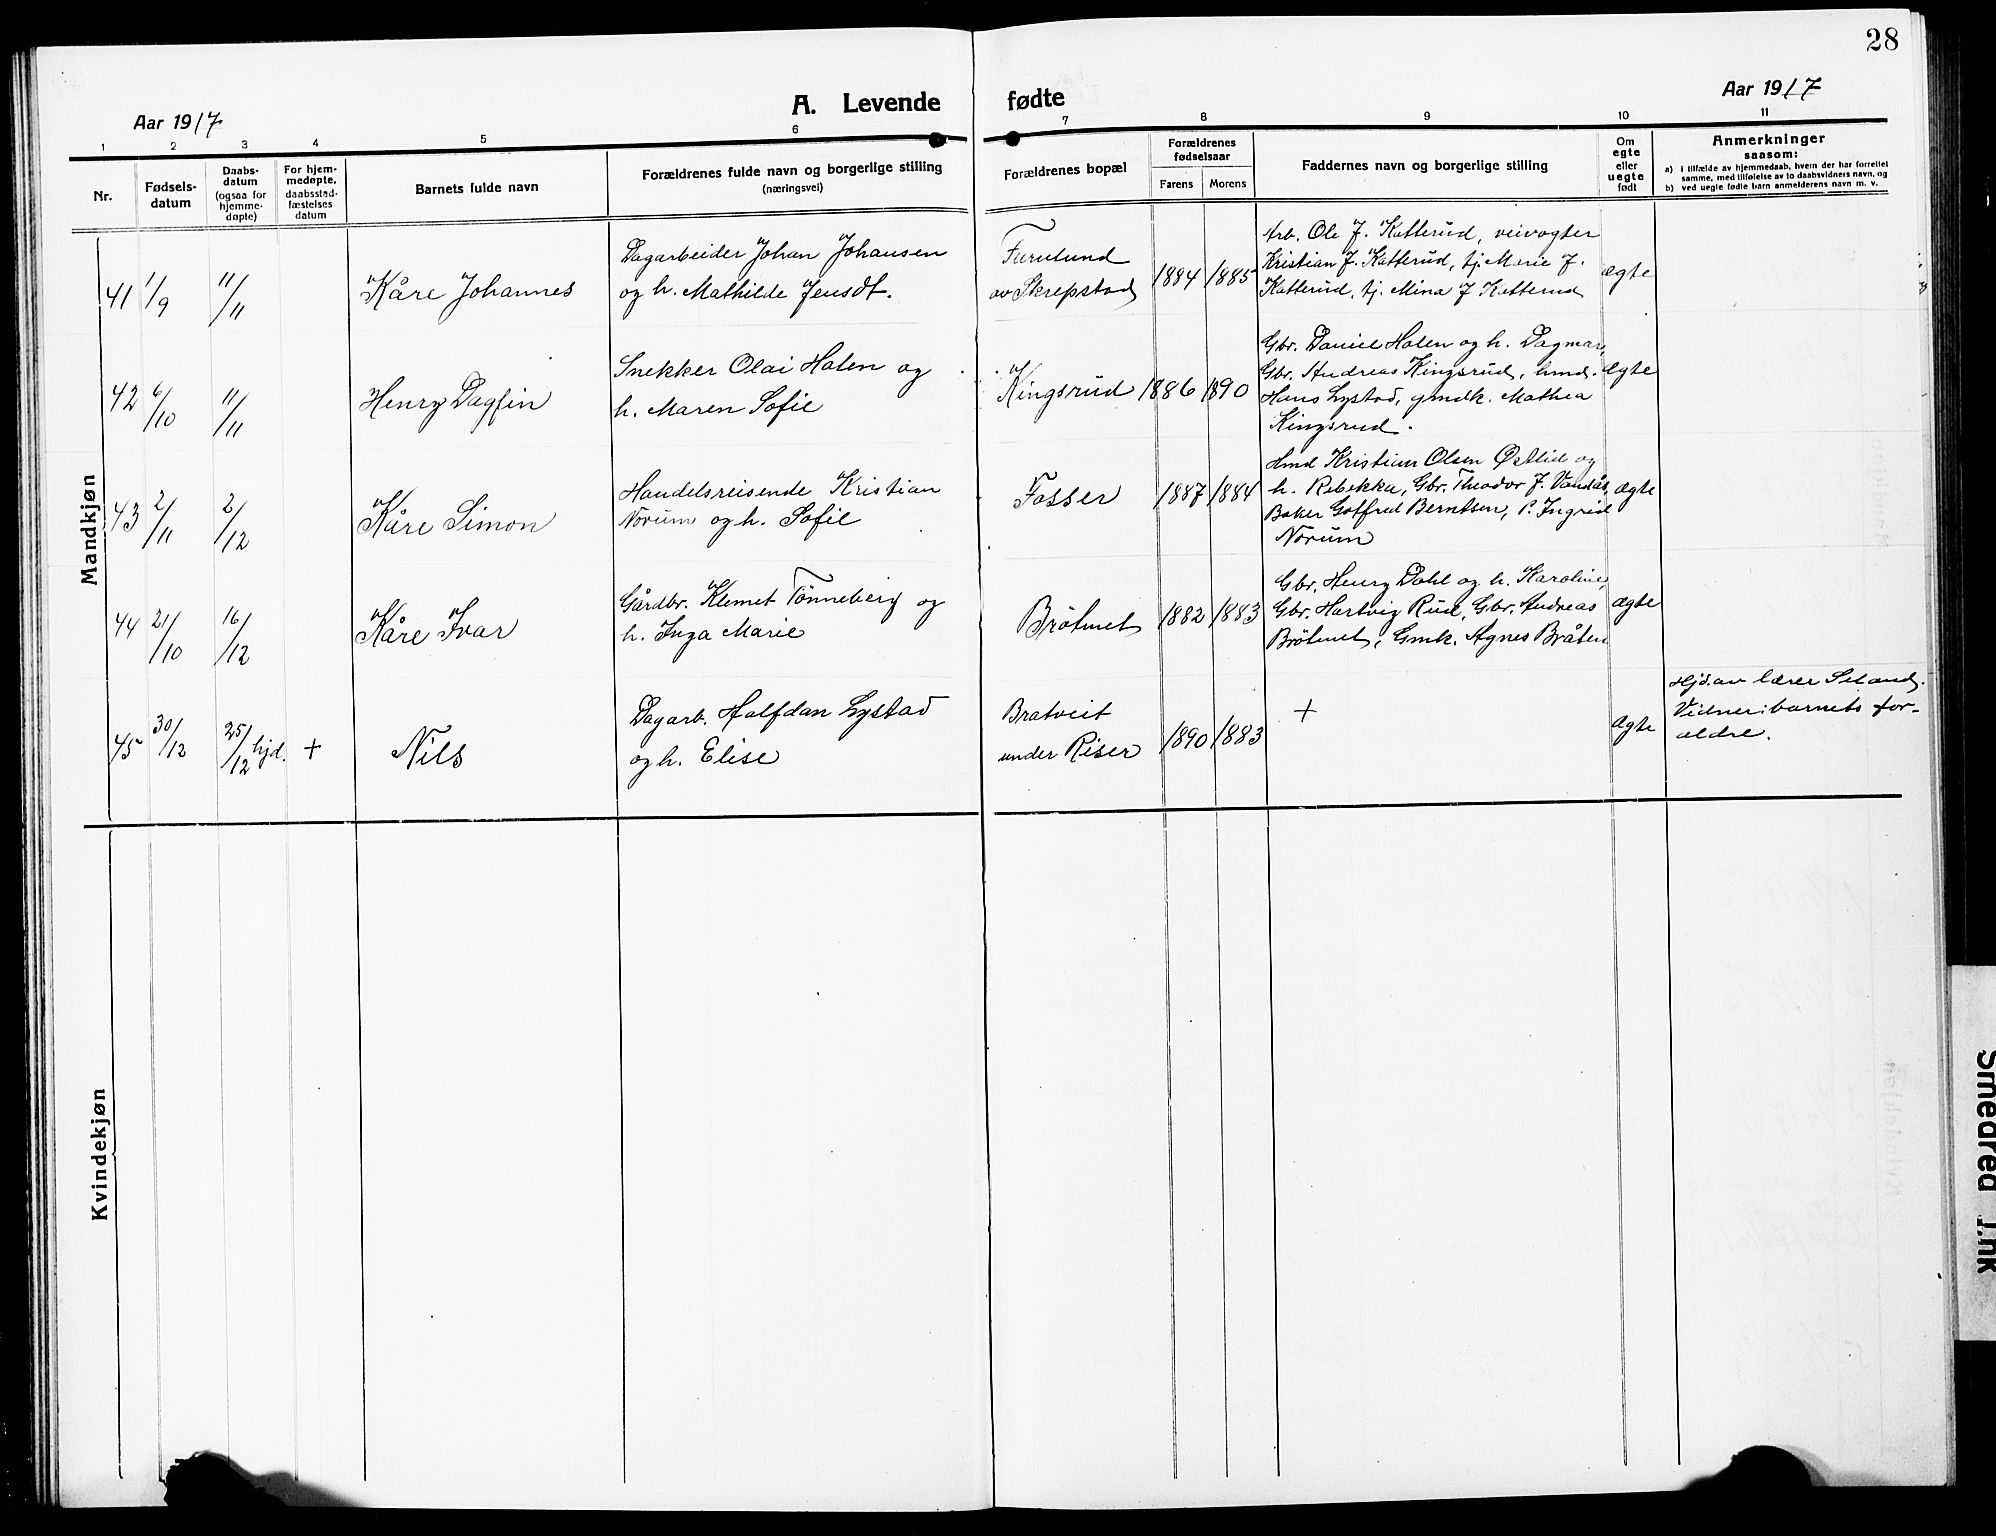 28
Aar 1917
A. Levende fødte
Aar 1917
1 2 3 4 5 6 7 8 9 10 11
Nr.
Fødsels-
datum
Daabs-
datum
(ogsaa for
hjemme-
døpte)
For hjem-
medøpte,
daabsstad-
fæstelses
datum
Barnets fulde navn
Forældrenes fulde navn og borgerlige stilling
(næringsvei)
Forældrenes bopæl
Forældrenes
fødselsaar
Farens Morens
Faddernes navn og borgerlige stilling
Om
egte
eller
uegte
født
Anmerkninger
saasom:
a) i tilfælde av hjemmedaab, hvem der har forrettet
samme, med tilføielse av to daabsvidners navn, og
b) ved uegte fødte barn anmelderens navn m. v.
Mandkjøn
41 1/9 11/11
Kåre Johannes
Dagarbeider Johan Johansen
og h. Mathilde Jensdt.
Furulund
av Skrepstad
1884 1885
Arb. Ole J. Katterud, veivogter
Kristian J. Katterud, tj. Marie J.
Katterud, tj. Mina J Katterud
ægte
42 6/10 11/11
Henry Dagfin
Snekker Olai Holen og
h. Maren Sofie
Kingsrud
1886 1890
Gbr. Daniel Holen og h. Dagmar,
Gbr. Andreas Kingsrud, hmd.
Hans Lystad, gmdk. Mathea
Kingsrud.
Ægte
43 2/11 2/12
Kåre Simon
Handelsreisende Kristian
Norum og h. Sofie
Fosser
1887 1884
Hmd Kristian Olsen Østlid og
h. Rebekka, Gbr. Theodor J. Vandås,
Baker Gotfred Berntsen, P. Ingrid
Norum
ægte
44 21/10 16/12
Kåre Ivar
Gårdbr. Klemet Tønneberg og
h. Inga Marie
Bråtnet
1882 1883
Gbr. Henry Dahl og h. Karoline,
Gbr. Hartvig Rud, Gbr. Andreas
Bråtnet, Gmk. Agnes Bråten
ægte
45 30/12 25/12 hjd. +
Nils
Dagarb. Halfdan Lystad
og h. Elise
Bratveit
under Riser
1890 1883
+
ægte
Hjd. av lærer Seland.
Vidner: barnets for-
ældre.
Kvindekjøn